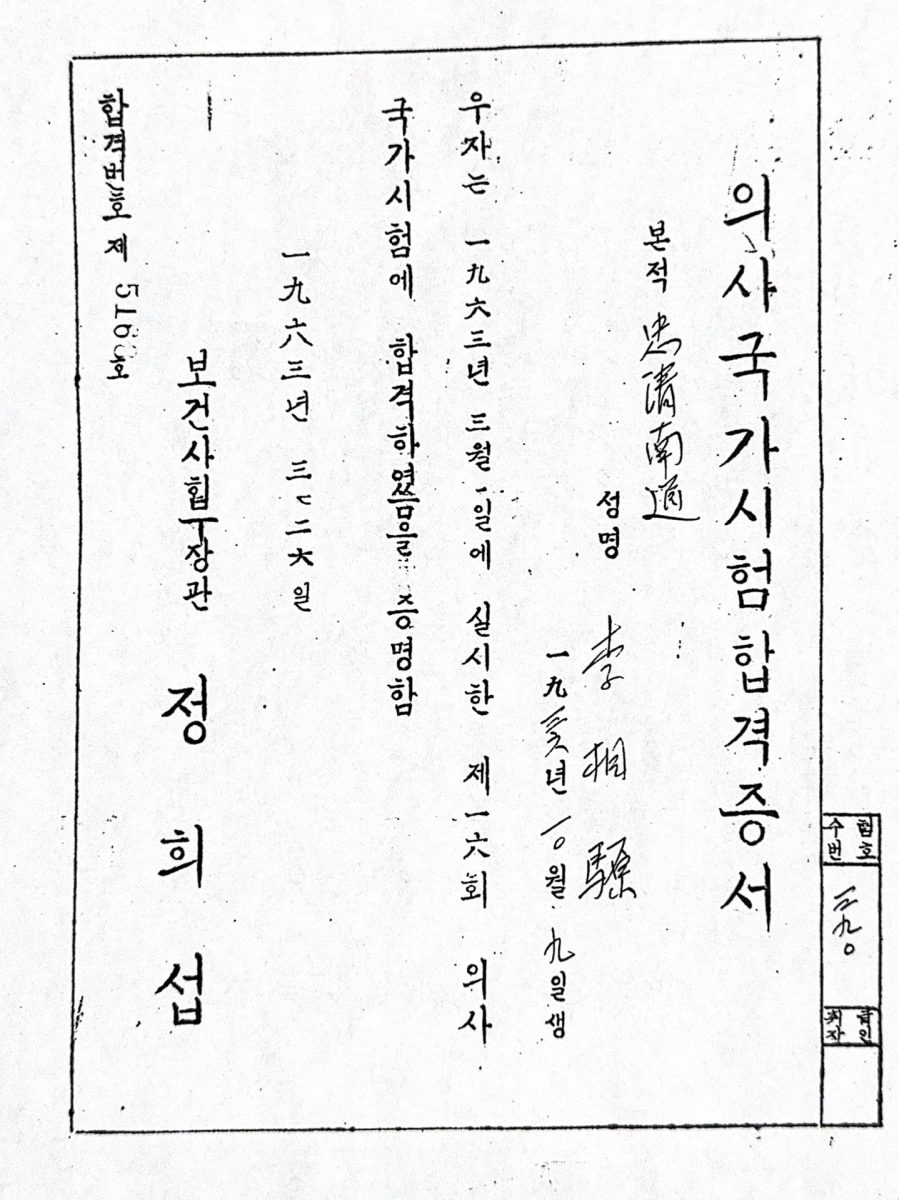 의사국가시험합격증서
본적 忠淸南道
성명 李相
년 一〇월 九일생
우자는 一九六三년 三월 일에 실시한 제一六회 의사
국가시험에 합격하였음을 증명함
一九六三년 三 二六일
보건사회부장관 정희섭
합격번호 제 호
수험번호
二九〇